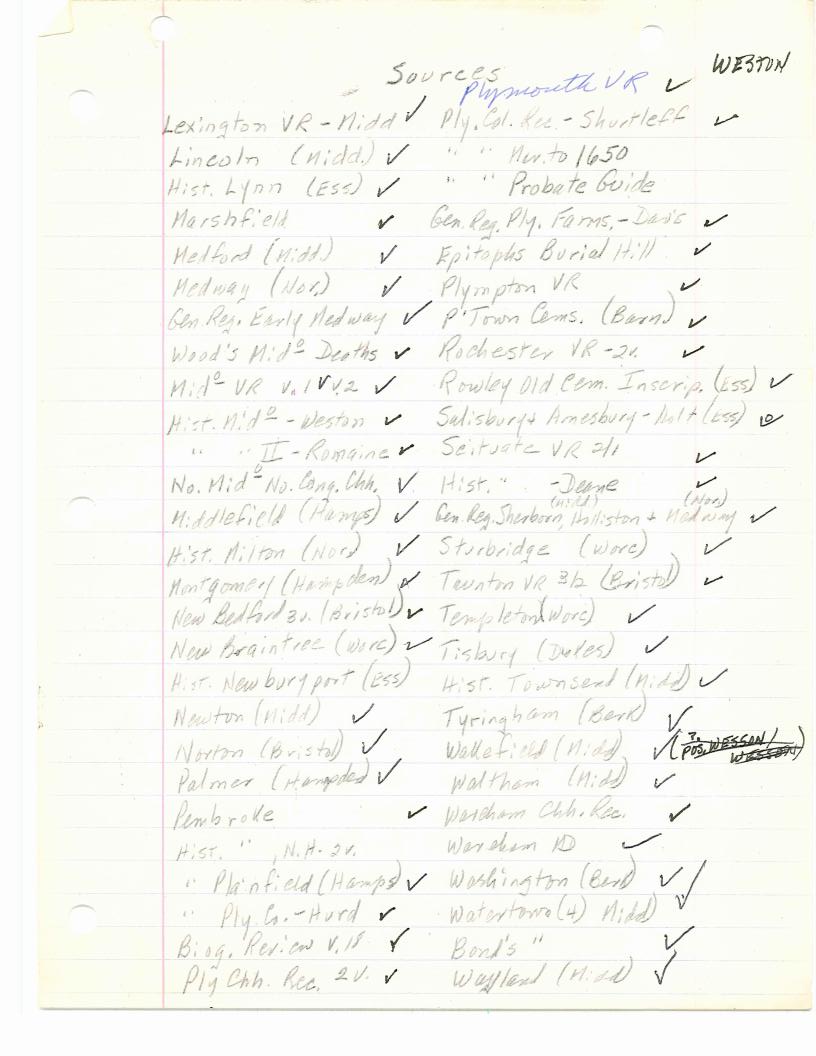 Sources
WESTON
Plymouth VR ✓
Lexington VR - Midd ✓
Lincoln (Midd.) ✓
Hist. Lynn (Ess) ✓
Marshfield ✓
Medford (Midd.) ✓
Medway (Nor.) ✓
Gen. Reg. Early Medway ✓
Wood's Mid⁰ Deaths ✓
Mid⁰ VR v.1 ✓ v.2 ✓
Hist. Mid⁰ - Weston ✓
" " II - Romaine ✓
No. Mid⁰ No. Cong. Chh. ✓
Middlefield (Hamps) ✓
Hist. Milton (Nor) ✓
Montgomery (Hampden) ✓
New Bedford 3v. (Bristol) ✓
New Braintree (Worc) ✓
Hist. Newburyport (Ess)
Newton (Midd) ✓
Norton (Bristol) ✓
Palmer (Hampden) ✓
Pembroke ✓
Hist. " , N.H. 2v.
" Plainfield (Hamps) ✓
" Ply. Co. - Hurd ✓
Biog. Review V. 18 ✓
Ply Chh. Rec. 2 V. ✓
Ply. Col. Rec. - Shurtleff ✓
" " Mar. to 1650
" " Probate Guide
Gen. Reg. Ply. Fams. - Davis ✓
Epitaphs Burial Hill ✓
Plympton VR ✓
P'Town Cems. (Barn.) ✓
Rochester VR - 2v. ✓
Rowley Old Cem. Inscrip. (Ess) ✓
Salisbury & Amesbury - Hoyt (Ess)
Scituate VR 2/1 ✓
Hist. " - Deane ✓
(Midd) (Nor)
Gen. Reg. Sherborn, Holliston + Medway ✓
Sturbridge (Worc) ✓
Taunton VR 3/2 (Bristol) ✓
Templeton (Worc) ✓
Tisbury (Dukes) ✓
Hist. Townsend (Midd) ✓
Tyringham (Berk) ✓
Wakefield (Midd) ✓ (?. POS. WESSON/ WESSON)
Waltham (Midd) ✓
Wareham Chh. Rec. ✓
Wareham ✓
Washington (Berk) ✓
Watertown (4) Midd) ✓
Bond's " ✓
Wayland (Midd) ✓